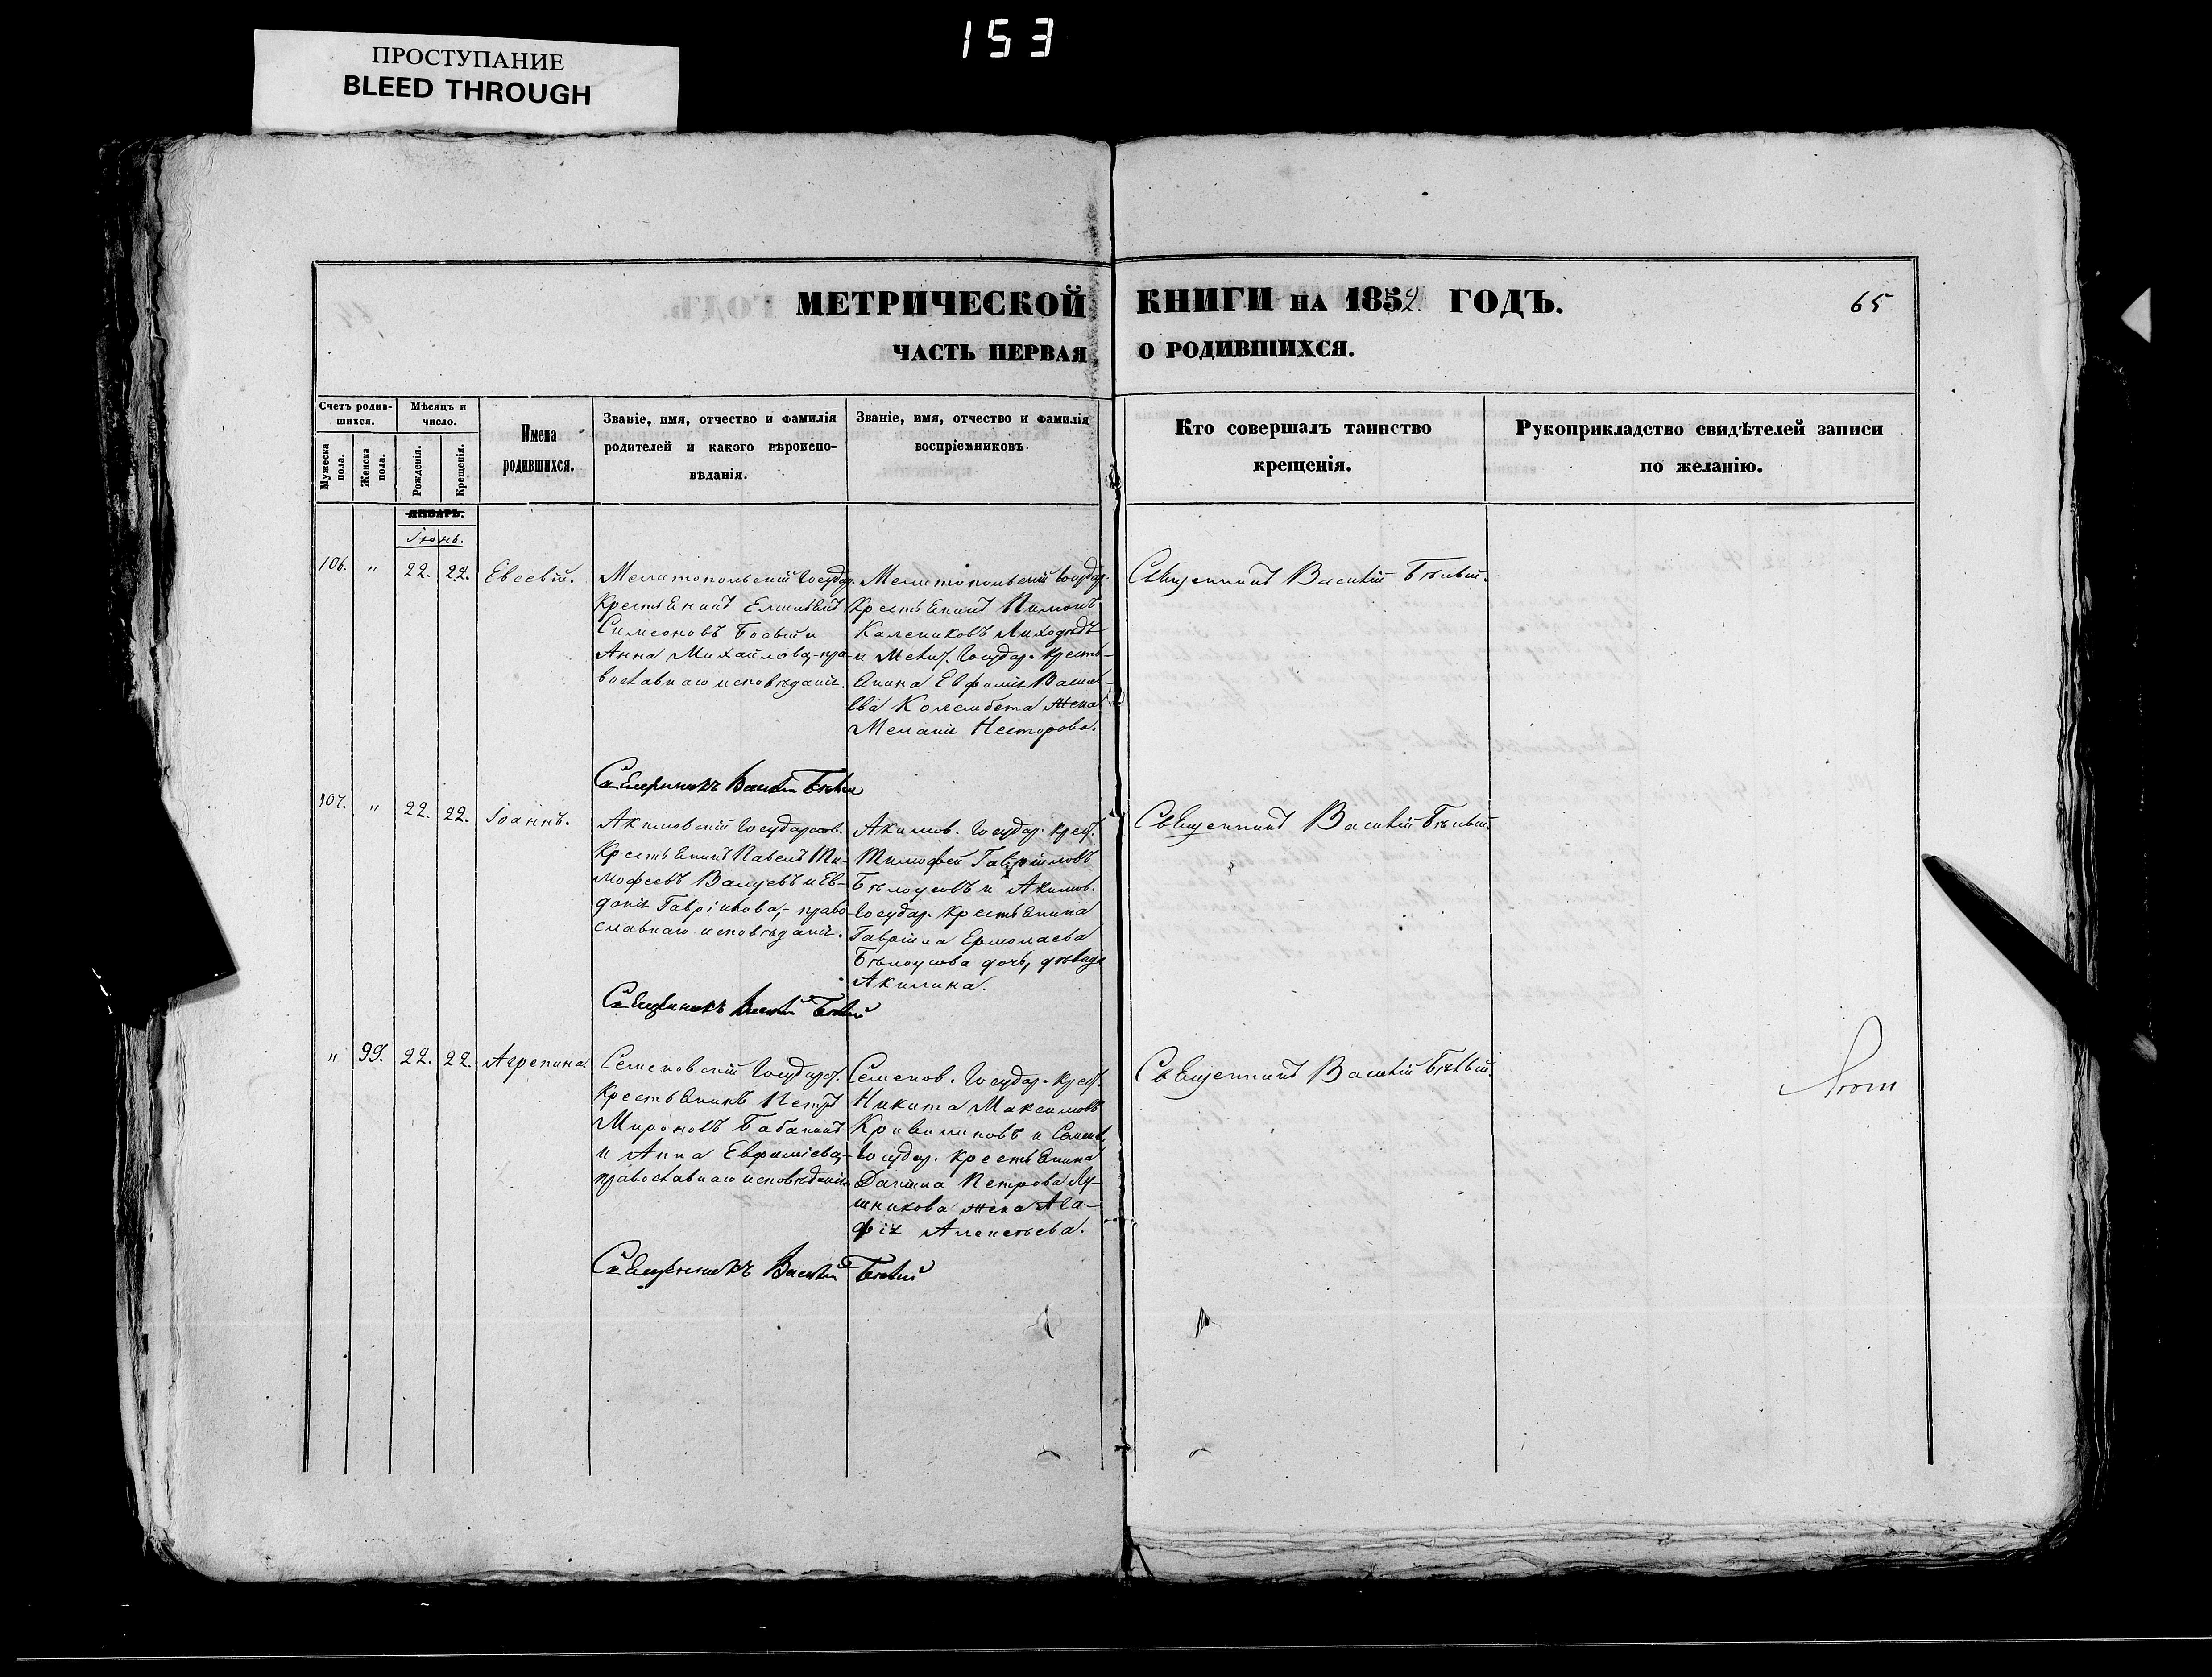 153
ПРОСТУПАНИЕ
BLEED THROUGH
МЕТРИЧЕСКОЙ КНИГИ НА 1852. ГОДЪ.
65
ЧАСТЬ ПЕРВАЯ, О РОДИВШИХСЯ.
Счетъ родив-
шихся.
Мужеска пола.
Женска пола.
Мѣсяцъ и
число.
Рожденія.
Крещенія.
Имена
родившихся.
Званіе, имя, отчество и фамилія
родителей и какого вѣроиспо-
вѣданія.
Званіе, имя, отчество и фамилія
воспріемниковъ.
Кто совершалъ таинство
крещенія.
Рукоприкладство свидѣтелей записи
по желанію.
ЯНВАРЬ.
Іюнь.
106. " 22. 22. Евсевій.
Мелитопольскій Государ.
Крестьянинъ
Симеоновъ и
Анна Михайлова,-пра-
вославнаго исповѣданія.
Мелитопольскій Государ.
Крестьянинъ Пимонъ
Калениковъ Лиходѣдъ
и Мелит. Государ. кресть-
янина Евфимія Василь-
ева Колембета жена
Меланія Несторова.
Священникъ Василій Бѣлый.
Священникъ Василій Бѣлый
107. " 22. 22. Іоаннъ.
Акимовскій Государств.
Крестьянинъ Павелъ Ти-
мофеевъ Валуевъ и Ев-
докія Гавріилова,- право-
славнаго исповѣданія.
Акимов. Государ. крест.
Тимофей Гавріиловъ
Бѣлоусовъ и Акимов.
Государ. крестьянина
Гавріила Ермолаева
Бѣлоусова дочь, дѣвица
Акилина.
Священникъ Василій Бѣлый.
Священникъ Василій Бѣлый
" 99. 22. 22. Агрепина.
Семеновскій Государст.
Крестьянинъ Петръ
Мироновъ Бабанинъ
и Анна Евфиміева,-
православнаго исповѣданія.
Семенов. Государ. крест.
Никита Максимовъ
и Семенов.
Государ. крестьянина
Даніила Петрова Лу-
шникова жена Ага-
фія Алексѣева.
Священникъ Василій Бѣлый.
Священникъ Василій Бѣлый